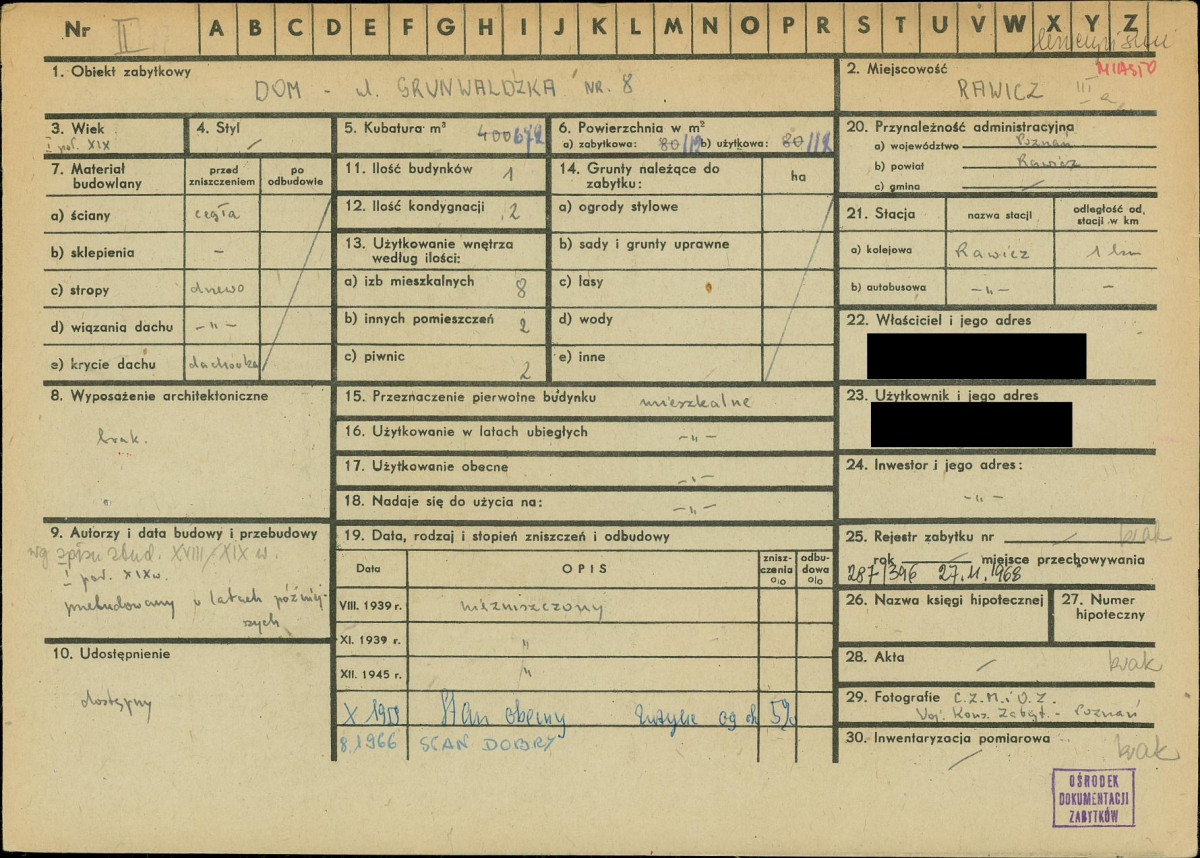 Nr II A B C D E F G H I J K L M N O P R S T U V W X Y Z
1. Obiekt zabytkowy
DOM - ul. GRUNWALDZKA NR. 8
2. Miejscowość
MIASTO
RAWICZ III a
3. Wiek
I poł. XIX
4. Styl
5. Kubatura m³ 400 672
6. Powierzchnia w m²
a) zabytkowa: 80/112 b) użytkowa: 80/112
20. Przynależność administracyjna
a) województwo Poznań
b) powiat Rawicz
c) gmina
7. Materiał budowlany
przed zniszczeniem
po odbudowie
a) ściany cegła
b) sklepienia -
c) stropy drewno
d) wiązania dachu -"-
e) krycie dachu dachówka
11. Ilość budynków 1
12. Ilość kondygnacji 2
13. Użytkowanie wnętrza
według ilości:
a) izb mieszkalnych 8
b) innych pomieszczeń 2
c) piwnic 2
14. Grunty należące do
zabytku:
ha
a) ogrody stylowe
b) sady i grunty uprawne
c) lasy
d) wody
e) inne
21. Stacja
nazwa stacji
odległość od
stacji w km
a) kolejowa Rawicz 1 km
b) autobusowa -"- -
22. Właściciel i jego adres
23. Użytkownik i jego adres
8. Wyposażenie architektoniczne
brak.
15. Przeznaczenie pierwotne budynku mieszkalne
16. Użytkowanie w latach ubiegłych -"-
17. Użytkowanie obecne -"-
18. Nadaje się do użycia na: -"-
24. Inwestor i jego adres:
-"-
9. Autorzy i data budowy i przebudowy
wg spisu zbud. XVIII/XIX w.
I poł. XIX w.
przebudowany w latach później-
szych
19. Data, rodzaj i stopień zniszczeń i odbudowy
Data
OPIS
znisz-
czenia
o/o
odbu-
dowa
o/o
VIII. 1939 r. niezniszczony
XI. 1939 r. "
XII. 1945 r. "
X 1959 Stan obecny zużycie og ok 5%
8.1966 STAN DOBRY
25. Rejestr zabytku nr brak
rok miejsce przechowywania
287/396 27.11.1968
26. Nazwa księgi hipotecznej
27. Numer
hipoteczny
10. Udostępnienie
dostępny
28. Akta brak
29. Fotografie C.Z.M.i O.Z.
Woj. Kons. Zabyt. - Poznań
30. Inwentaryzacja pomiarowa brak
OŚRODEK
DOKUMENTACJI
ZABYTKÓW